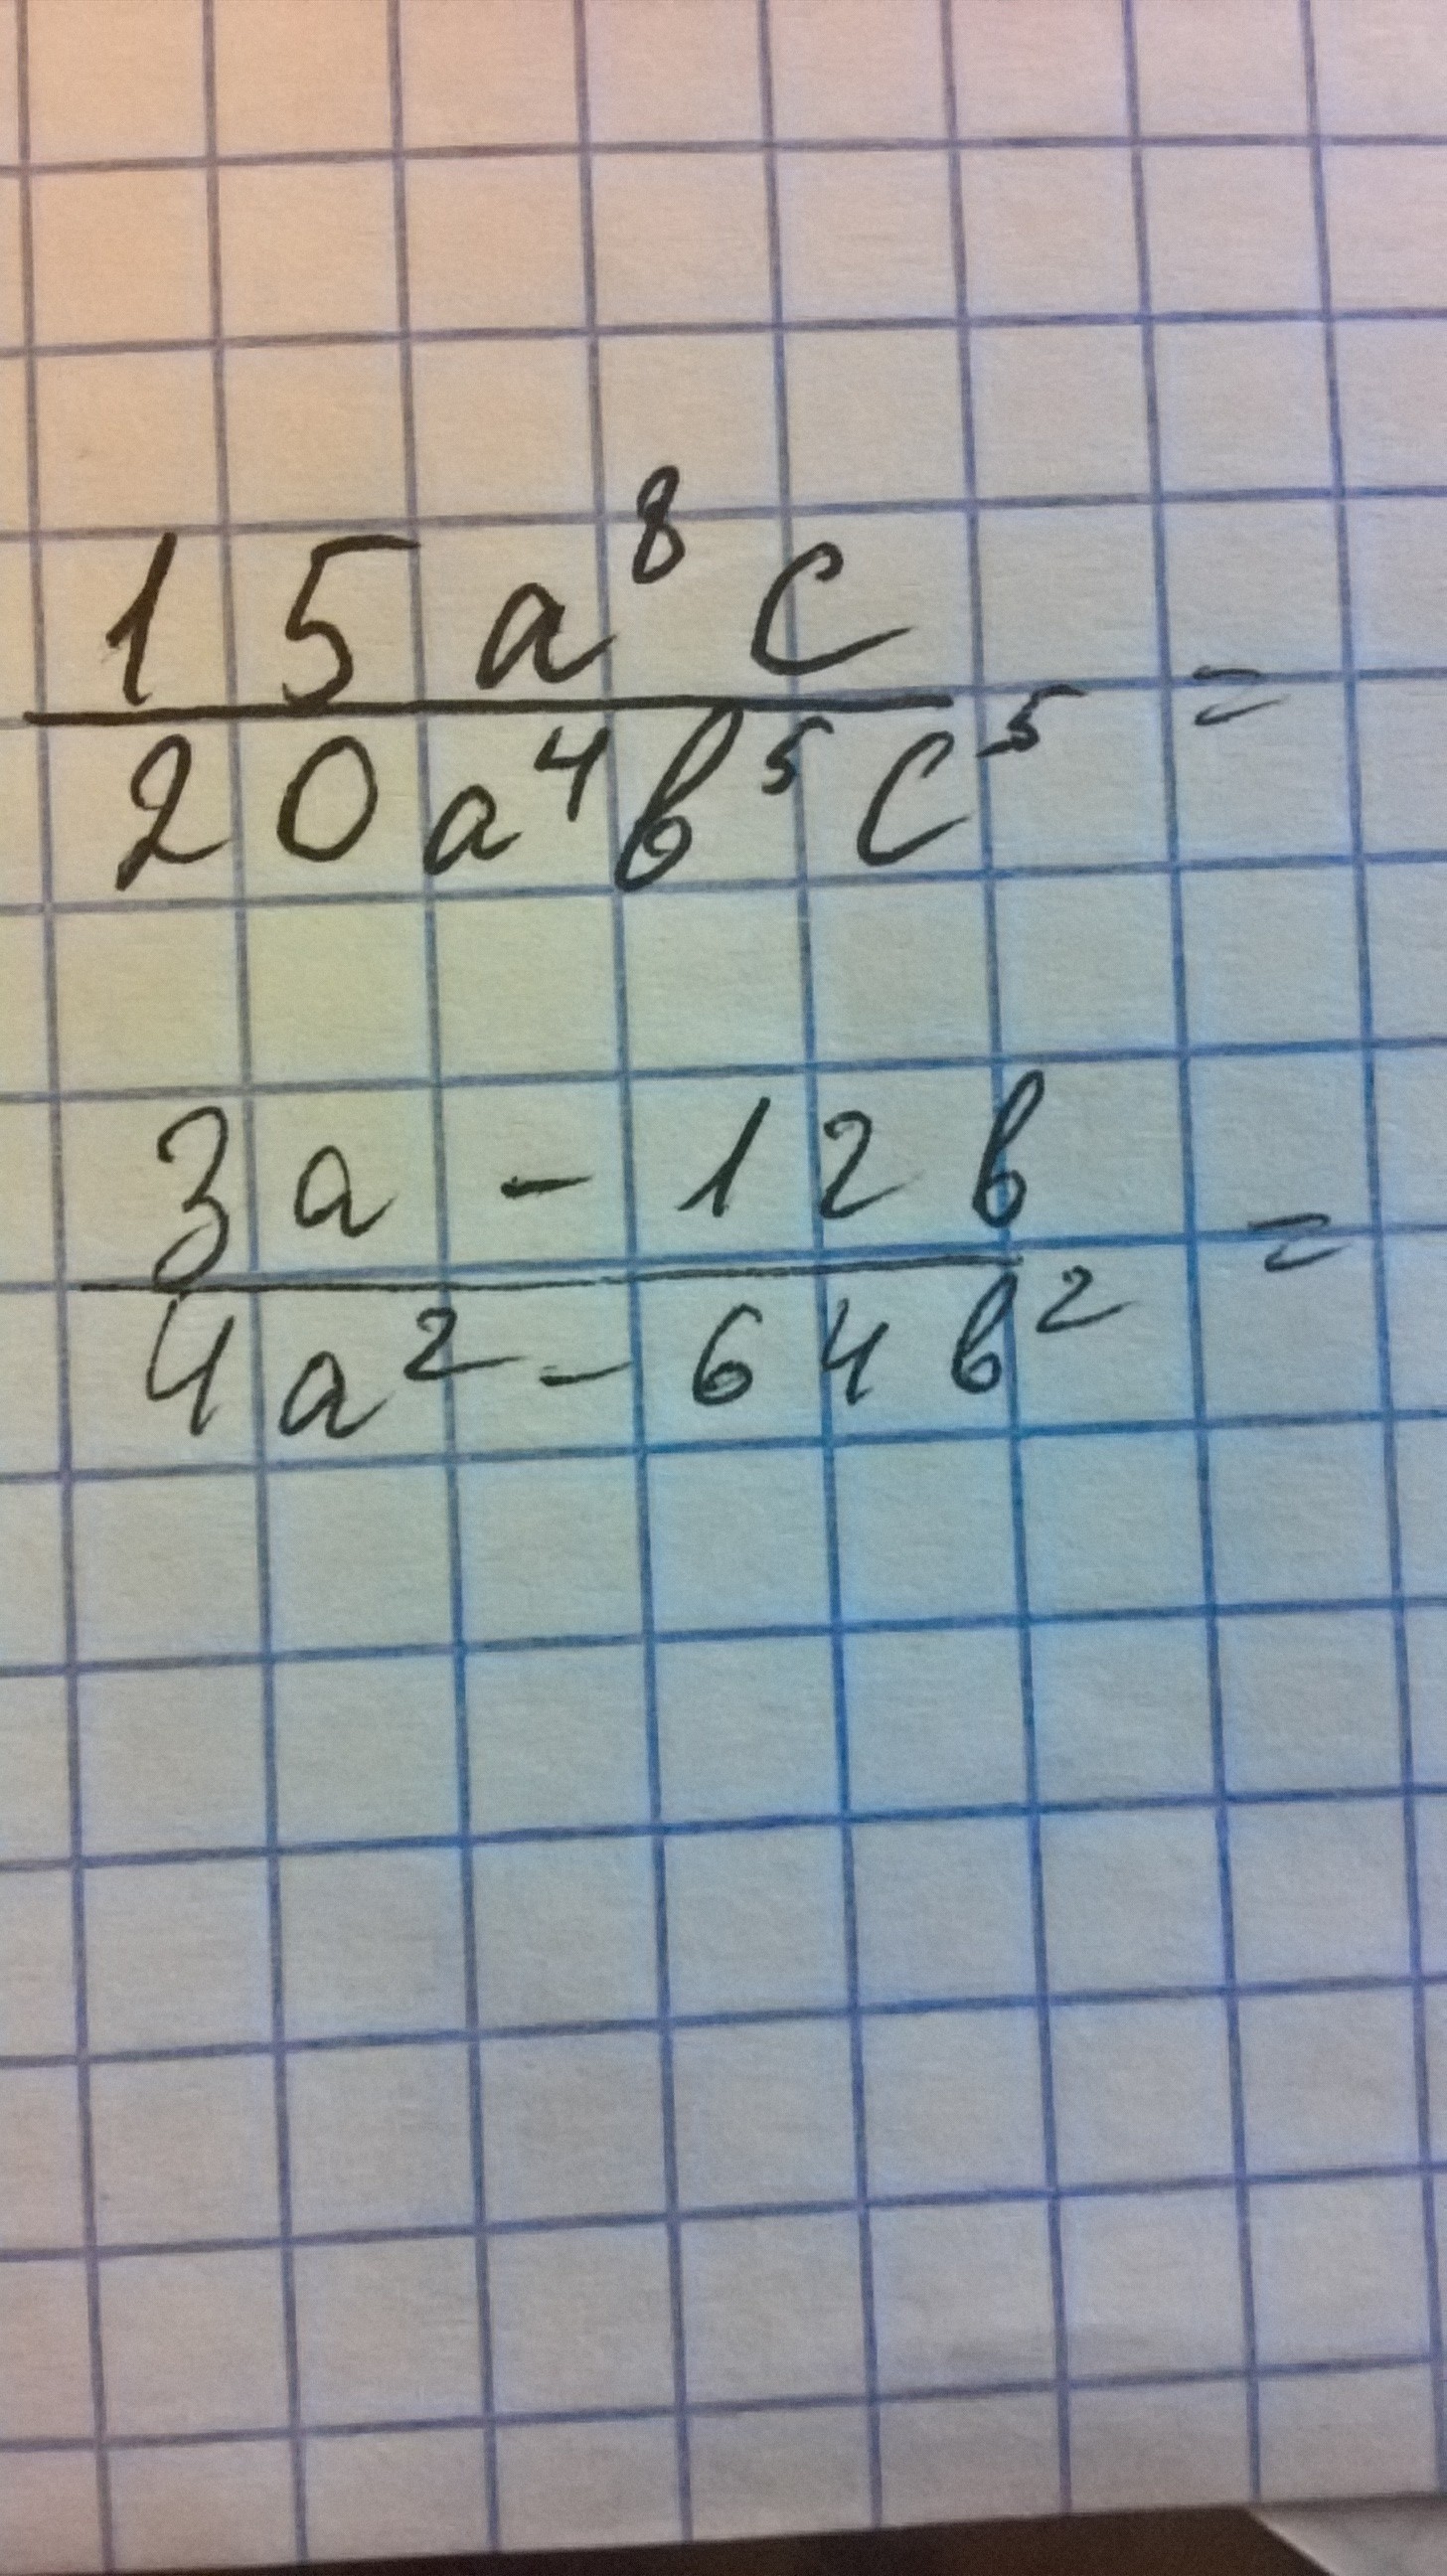 15a⁸c
20a⁴b⁵c⁵ =
3a - 12b
4a² - 64b² =